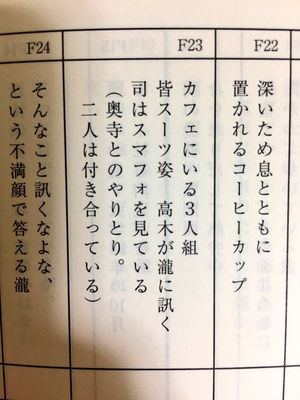 F22
深いため息とともに
置かれるコーヒーカップ
F23
カフェにいる3人組
皆スーツ姿 高木が瀧に訊く
司はスマフォを見ている
（奥寺とのやりとり。
二人は付き合っている）
F24
そんなこと訊くなよな、
という不満顔で答える瀧